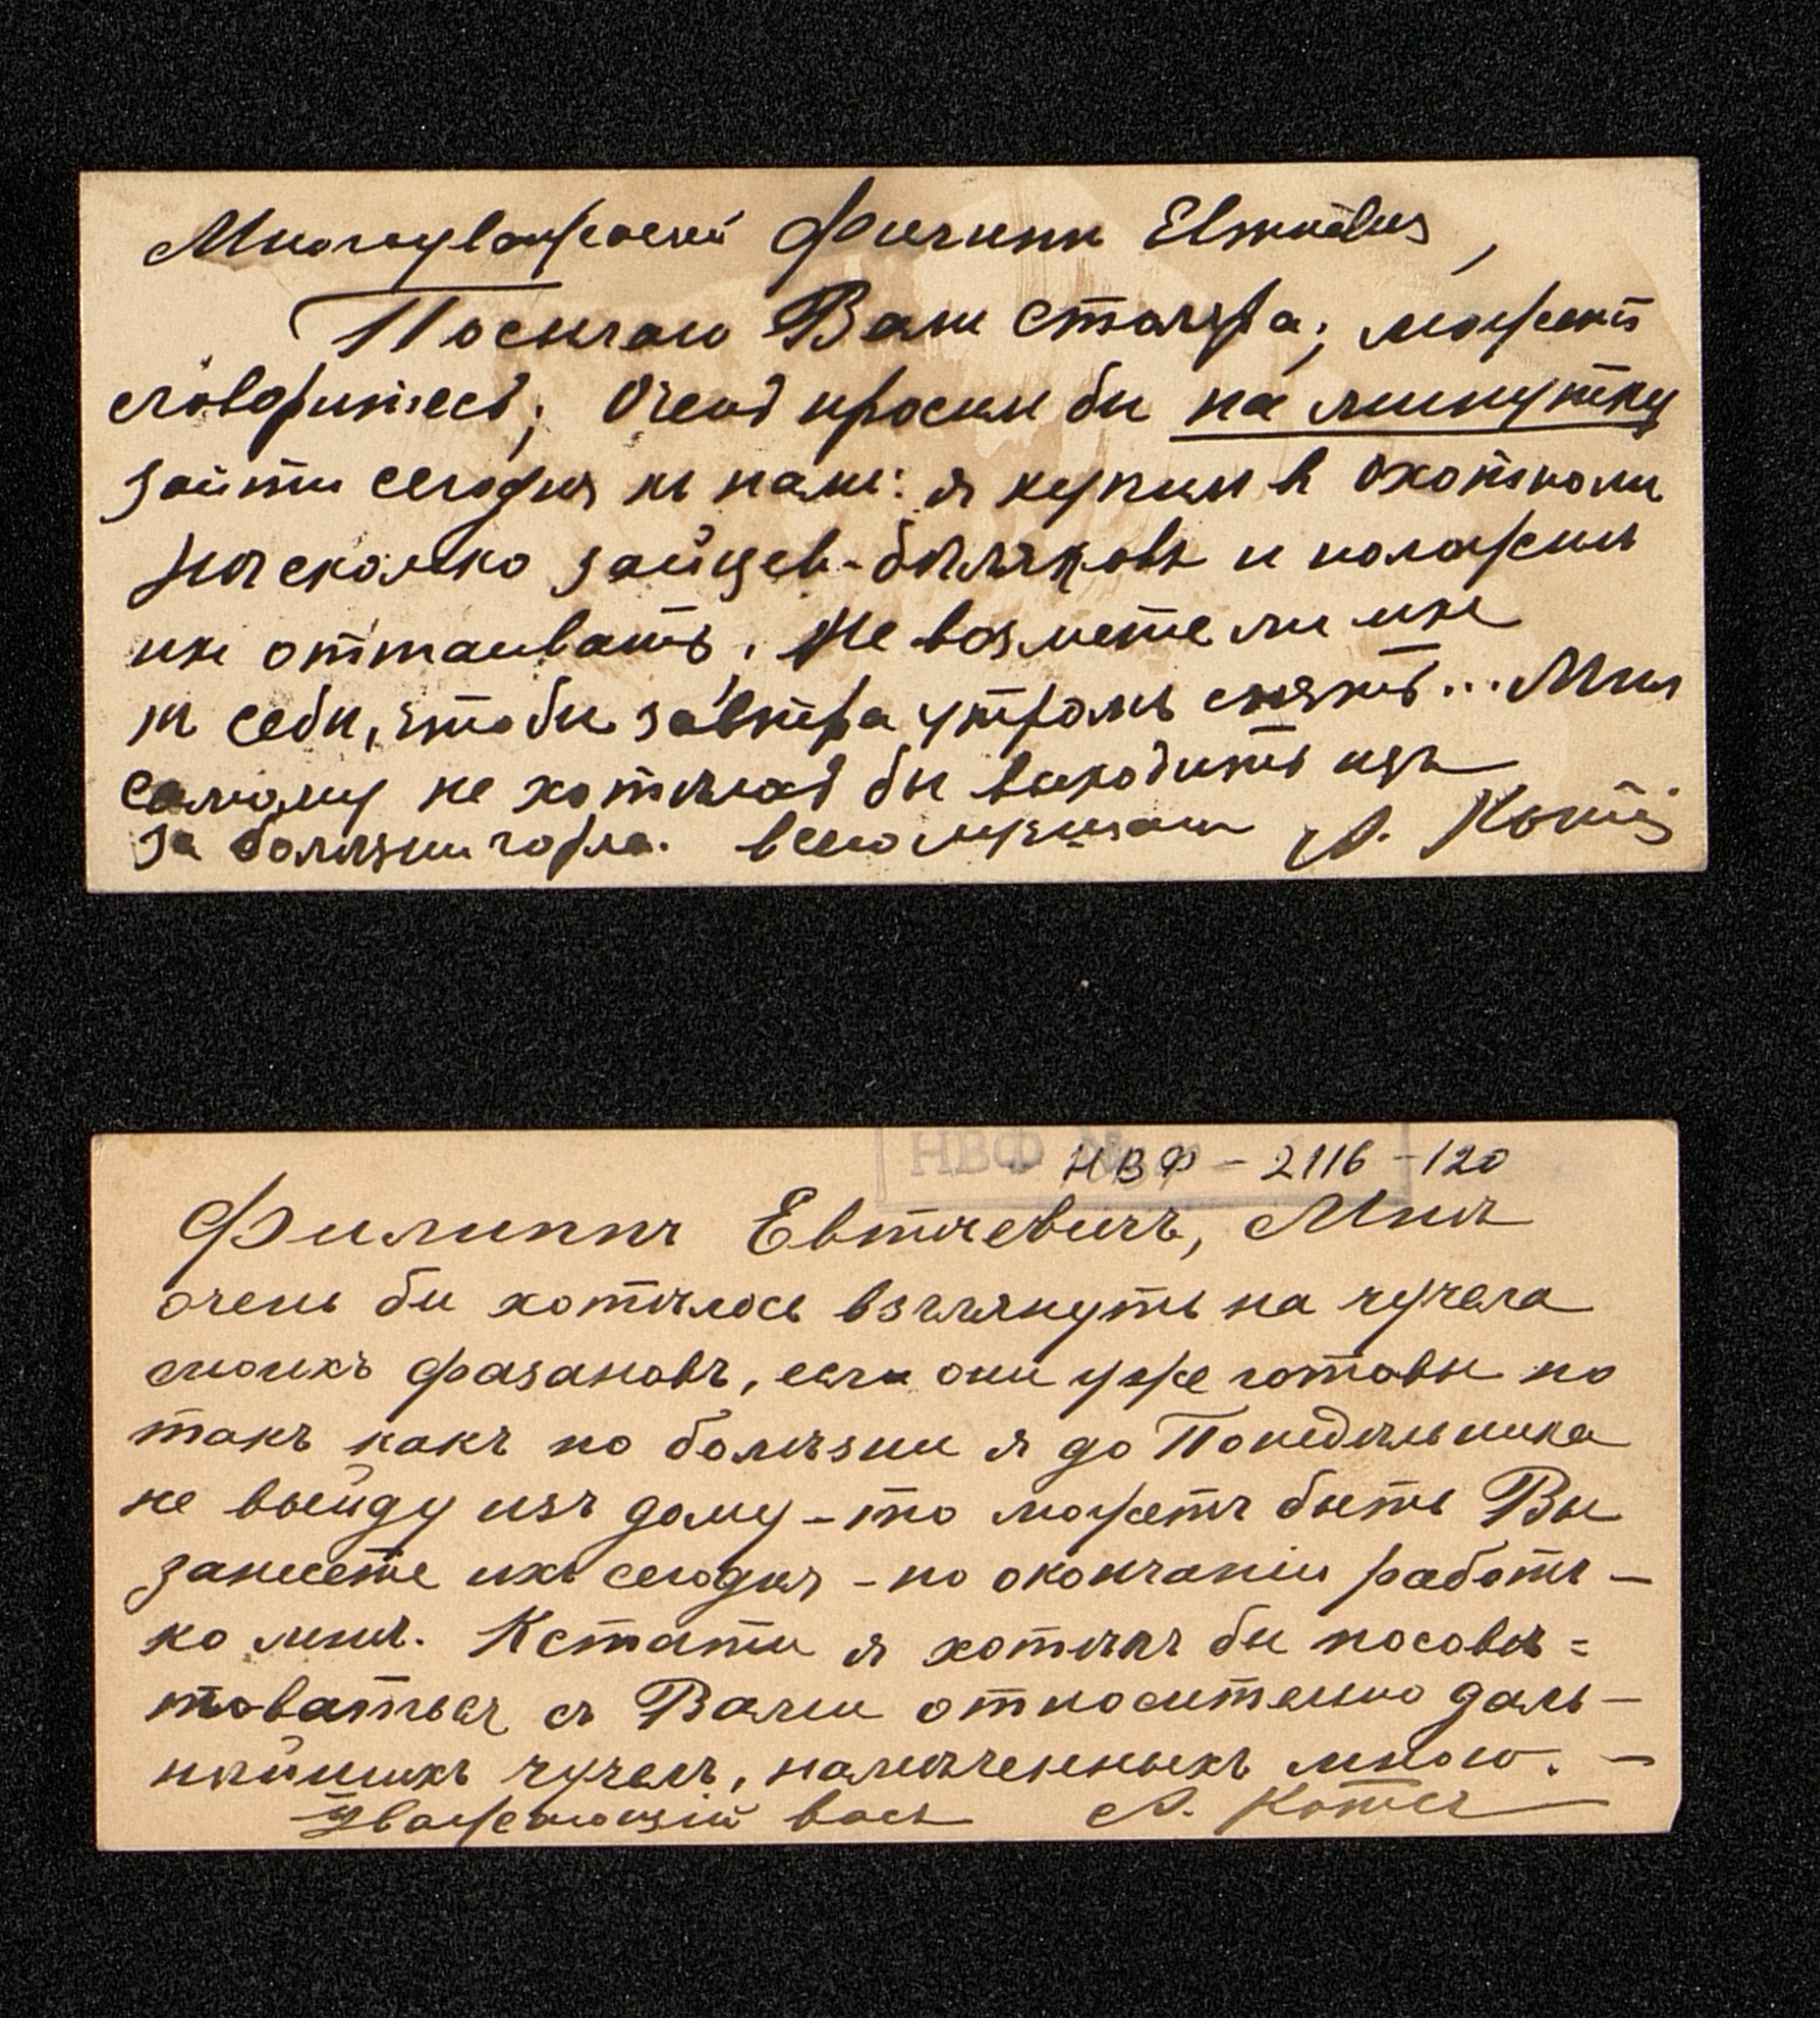 Многоуважаемый Филипп Евтѣевич,
Посылаю Вам столяра; может
сговоритесь; Очень просил бы на минутку
зайти сегодня къ намъ: я купил в Охотном
нѣсколько зайцев-бѣляковъ и положилъ
их оттаивать. Не возмете ли их
к себѣ, чтобы завтра утромъ снять... Мнѣ
самому не хотѣлось бы выходить изъ
за болѣзни горла. А. Котс
НВФ №
НВФ - 2116 - 120
Филиппъ Евтѣевичъ, Мнѣ
очень бы хотѣлось взглянуть на чучела
моихъ фазановъ, если они уже готовы но
такъ какъ по болѣзни я до Понедѣльника
не выйду изъ дому - то можетъ быть Вы
занесете ихъ сегодня - по окончаніи работъ -
ко мнѣ. Кстати я хотѣлъ бы посовѣ=
товаться съ Вами относительно даль-
нѣйшихъ чучелъ, намѣченныхъ мною. -
Уважающій васъ А. Котсъ